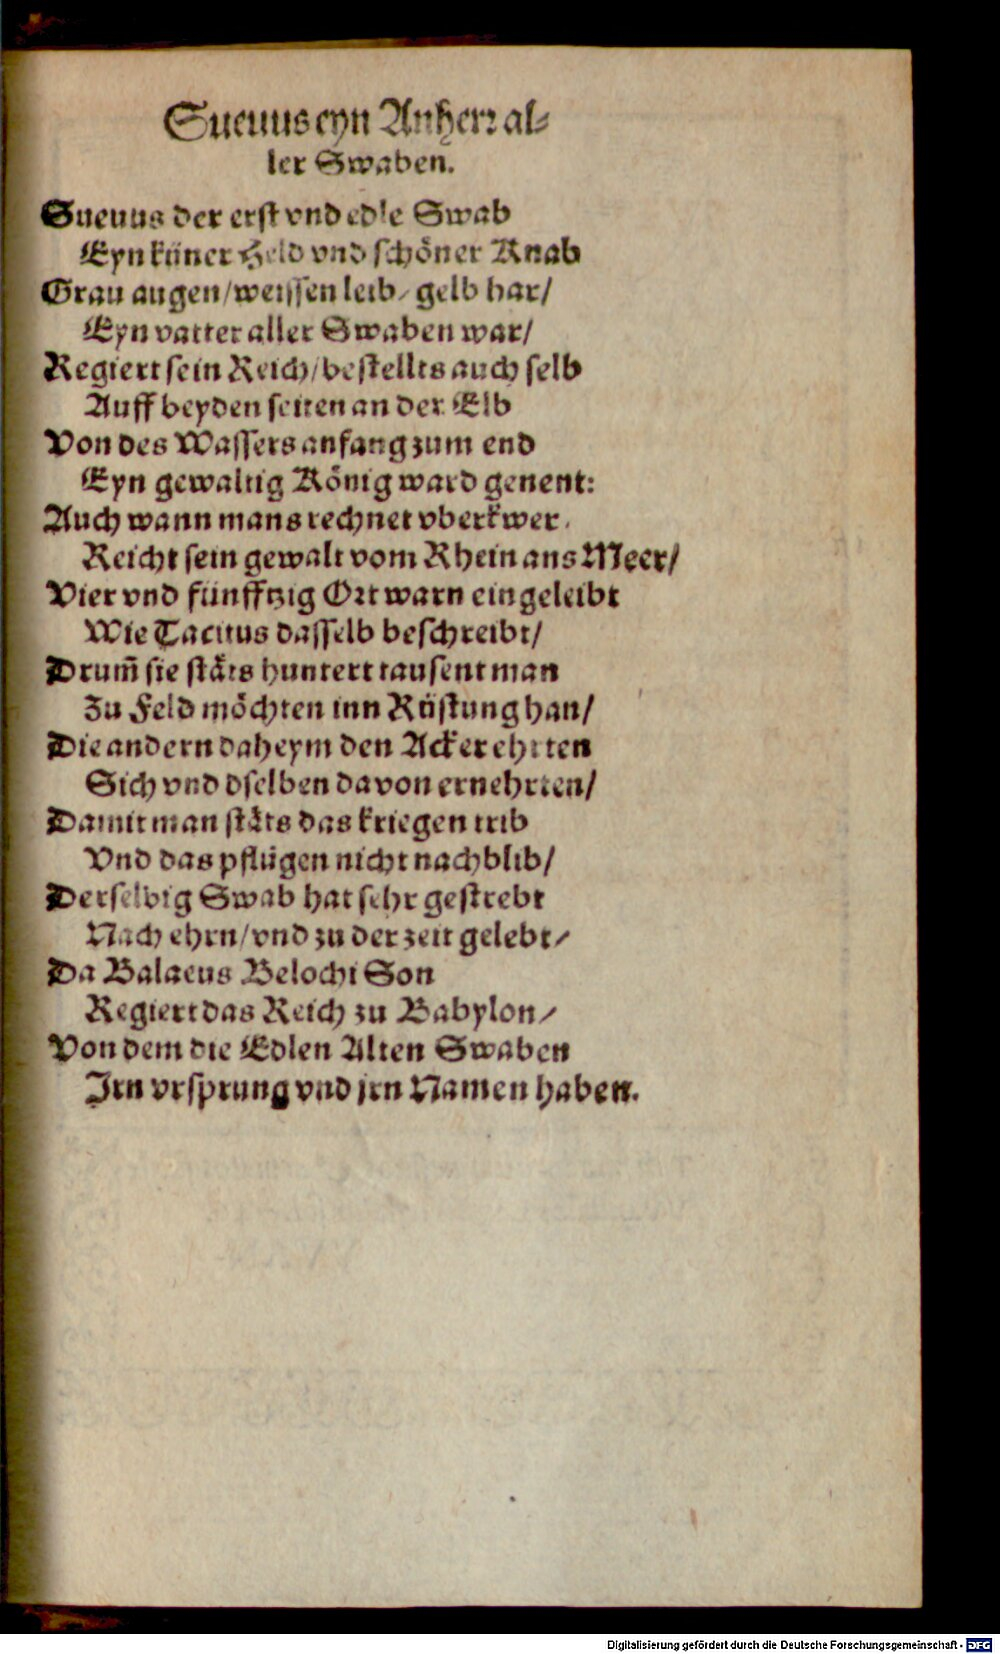 Sueuus eyn Anherr al-
ler Swaben.
Sueuus der erst vnd edle Swab
Eyn küner Held vnd schöner Knab
Grau augen/weissen leib/ gelb har/
Eyn vatter aller Swaben war/
Regiert sein Reich/bestellts auch selb
Auff beyden seiten an der Elb
Von des Wassers anfang zum end
Eyn gewaltig König ward genent:
Auch wann mans rechnet vberkwer.
Reicht sein gewalt vom Rhein ans Meer/
Vier vnd fünfftzig Ort warn eingeleibt
Wie Tacitus dasselb beschreibt/
Drum̃ sie stäts huntert tausent man
Zu Feld möchten inn Rüstung han/
Die andern daheym den Acker ehrten
Sich vnd dselben davon ernehrten/
Damit man stäts das kriegen trib
Vnd das pflügen nicht nachblib/
Derselbig Swab hat sehr gestrebt
Nach ehrn/vnd zu der zeit gelebt/
Da Balaeus Belochi Son
Regiert das Reich zu Babylon/
Von dem die Edlen Alten Swaben
Jrn vrsprung vnd jrn Namen haben.
Digitalisierung gefördert durch die Deutsche Forschungsgemeinschaft - DFG